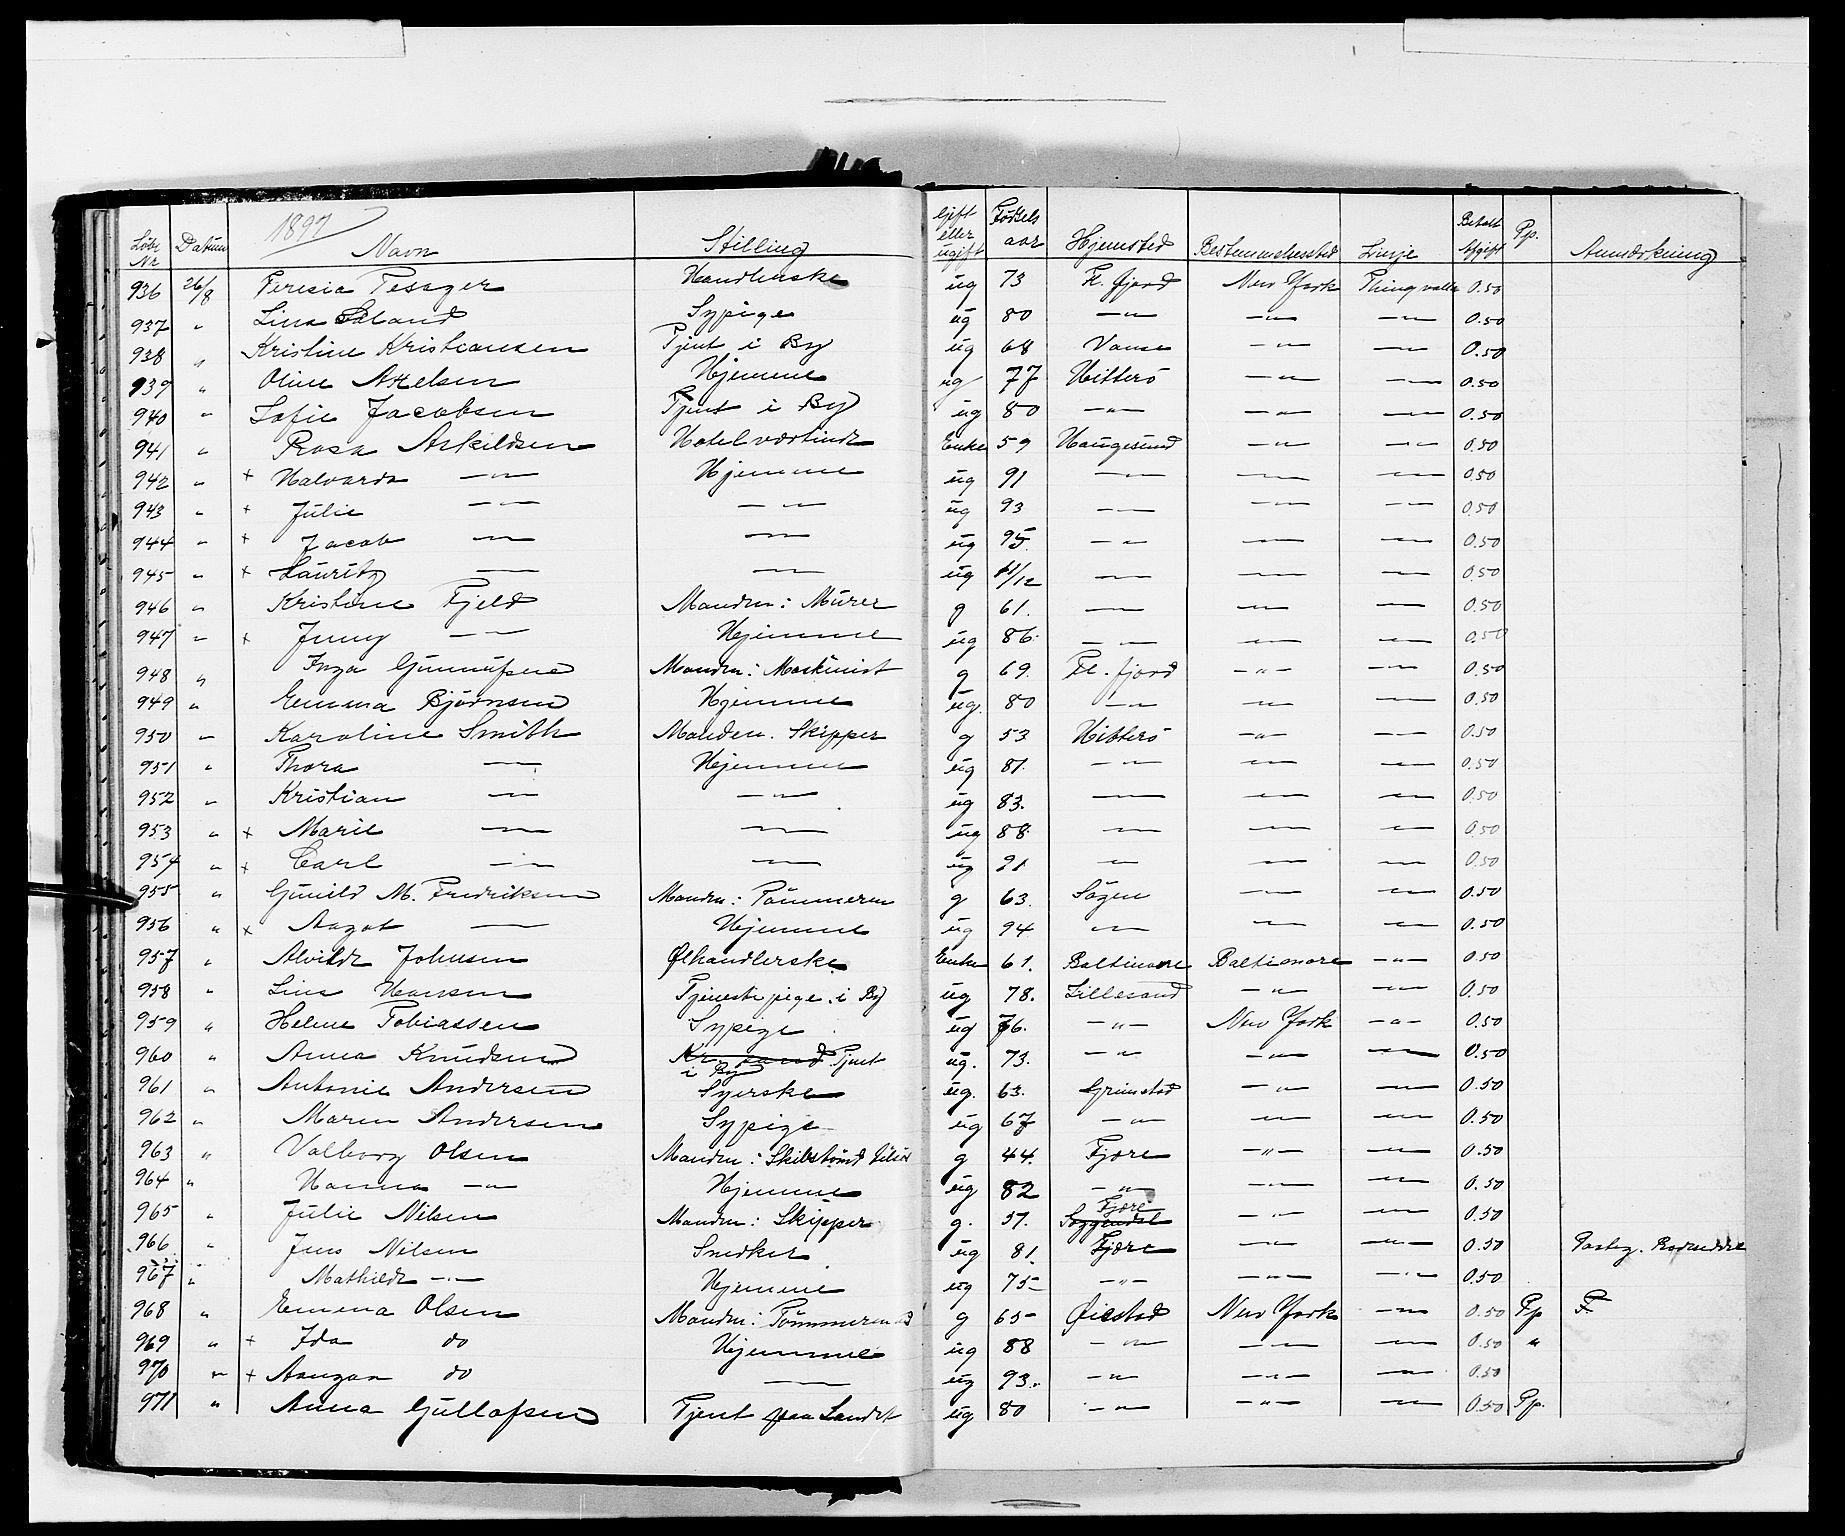 1897
Løbe Nr. Datum Navn Stilling Gift eller ugift Fødsels aar Hjemsted Bestemmelsessted Linje Betalt Afgift Pp. Anmærkning
936 26/8 Teresia Tessger Handlerske ug 73 Fl. fjord New York Thingvalla 0.50
937 " Lina Eeland Sypige ug 80 —"— —"— —"— 0.50
938 " Kristine Kristiansen Tjent i By ug 68 Vanse —"— —"— 0.50
939 " Oline Axelsen Hjemme ug 77 Hitterö —"— —"— 0.50
940 " Sofie Jacobsen Tjent i By ug 80 —"— —"— —"— 0.50
941 " Rosa Askildsen Hotelværtinde Enke 59 Haugesund —"— —"— 0.50
942 " + Halvarda —"— Hjemme ug 91 —"— —"— —"— 0.50
943 " + Julie —"— —"— ug 93 —"— —"— —"— 0.50
944 " + Jacob —"— —"— ug 95 —"— —"— —"— 0.50
945 " + Lauritz —"— —"— ug 11/12 —"— —"— —"— 0.50
946 " Kristine Fjeld Manden: Murer g 61. —"— —"— —"— 0.50
947 " + Jenny —"— Hjemme ug 86. —"— —"— —"— 0.50
948 " Inga Gunnufsen Manden: Maskinist g 69. Fl. fjord —"— —"— 0.50
949 " Emma Bjørnsen Hjemme ug. 80 —"— —"— —"— 0.50
950 " Karoline Smith Manden. Skipper g 53 Hitterö —"— —"— 0.50
951 " Thora —"— Hjemme ug 81. —"— —"— —"— 0.50
952 " Kristian —"— —"— ug 83. —"— —"— —"— 0.50
953 " + Marie —"— —"— ug 88. —"— —"— —"— 0.50
954 " + Carl —"— —"— ug 91 —"— —"— —"— 0.50
955 " Gunild M. Fredriksen Manden: Tømmerm g 63. Sögne —"— —"— 0.50
956 " + Aagot —"— Hjemme ug 94 —"— —"— —"— 0.50
957 " Alvilde Johnsen Ølhandlerske Enke 61. Baltimore Baltimore —"— 0.50
958 " Lina Hansen Tjenestepige i By ug 78. Lillesand —"— —"— 0.50
959 " Helene Tobiassen Sypige ug 76. —"— New York —"— 0.50
960 " Anna Knudsen Kr.sand Tjent i By ug. 73. —"— —"— —"— 0.50
961 " Antonie Andersen Syerske ug. 63. Grimstad —"— —"— 0.50
962 " Maren Andersen Sypige ug 67 —"— —"— —"— 0.50
963 " Valborg Olsen Manden: g 44. Fjære —"— —"— 0.50
964 " Hanna —"— Hjemme ug 82 —"— —"— —"— 0.50
965 " Julie Nilsen Manden: Skipper g. 57. Soggendal Fjære —"— —"— 0.50
966 " Jens Nilsen Snedker ug 81. Fjære —"— —"— 0.50
967 " Mathilde —"— Hjemme ug 75 —"— —"— —"— 0.50
968 " Emma Olsen Manden: Tømmermand g 65 Øiestad New York —"— 0.50 Pp F.
969 " + Ida do Hjemme ug 88 —"— —"— —"— 0.50 "
970 " + Aangar do —"— ug 93. —"— —"— —"— 0.50
971 " Anna Gullofsen Tjent paa Landet ug 80 —"— —"— —"— 0.50 Pp.